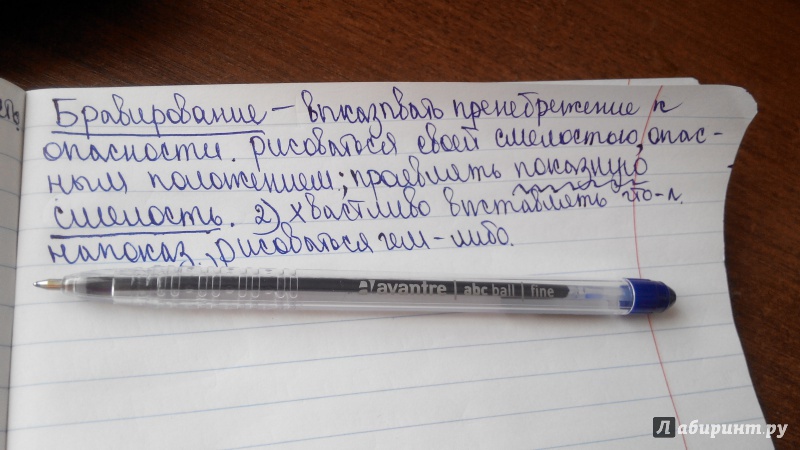 Бравирование – выказывать пренебрежение к
опасности. рисоваться своей смелостью, опас-
ным положением; проявлять показную
смелость. 2) хвастливо выставлять что-л.
напоказ., рисоваться чем-либо.
avantre | abc ball | fine
Лабиринт.ру